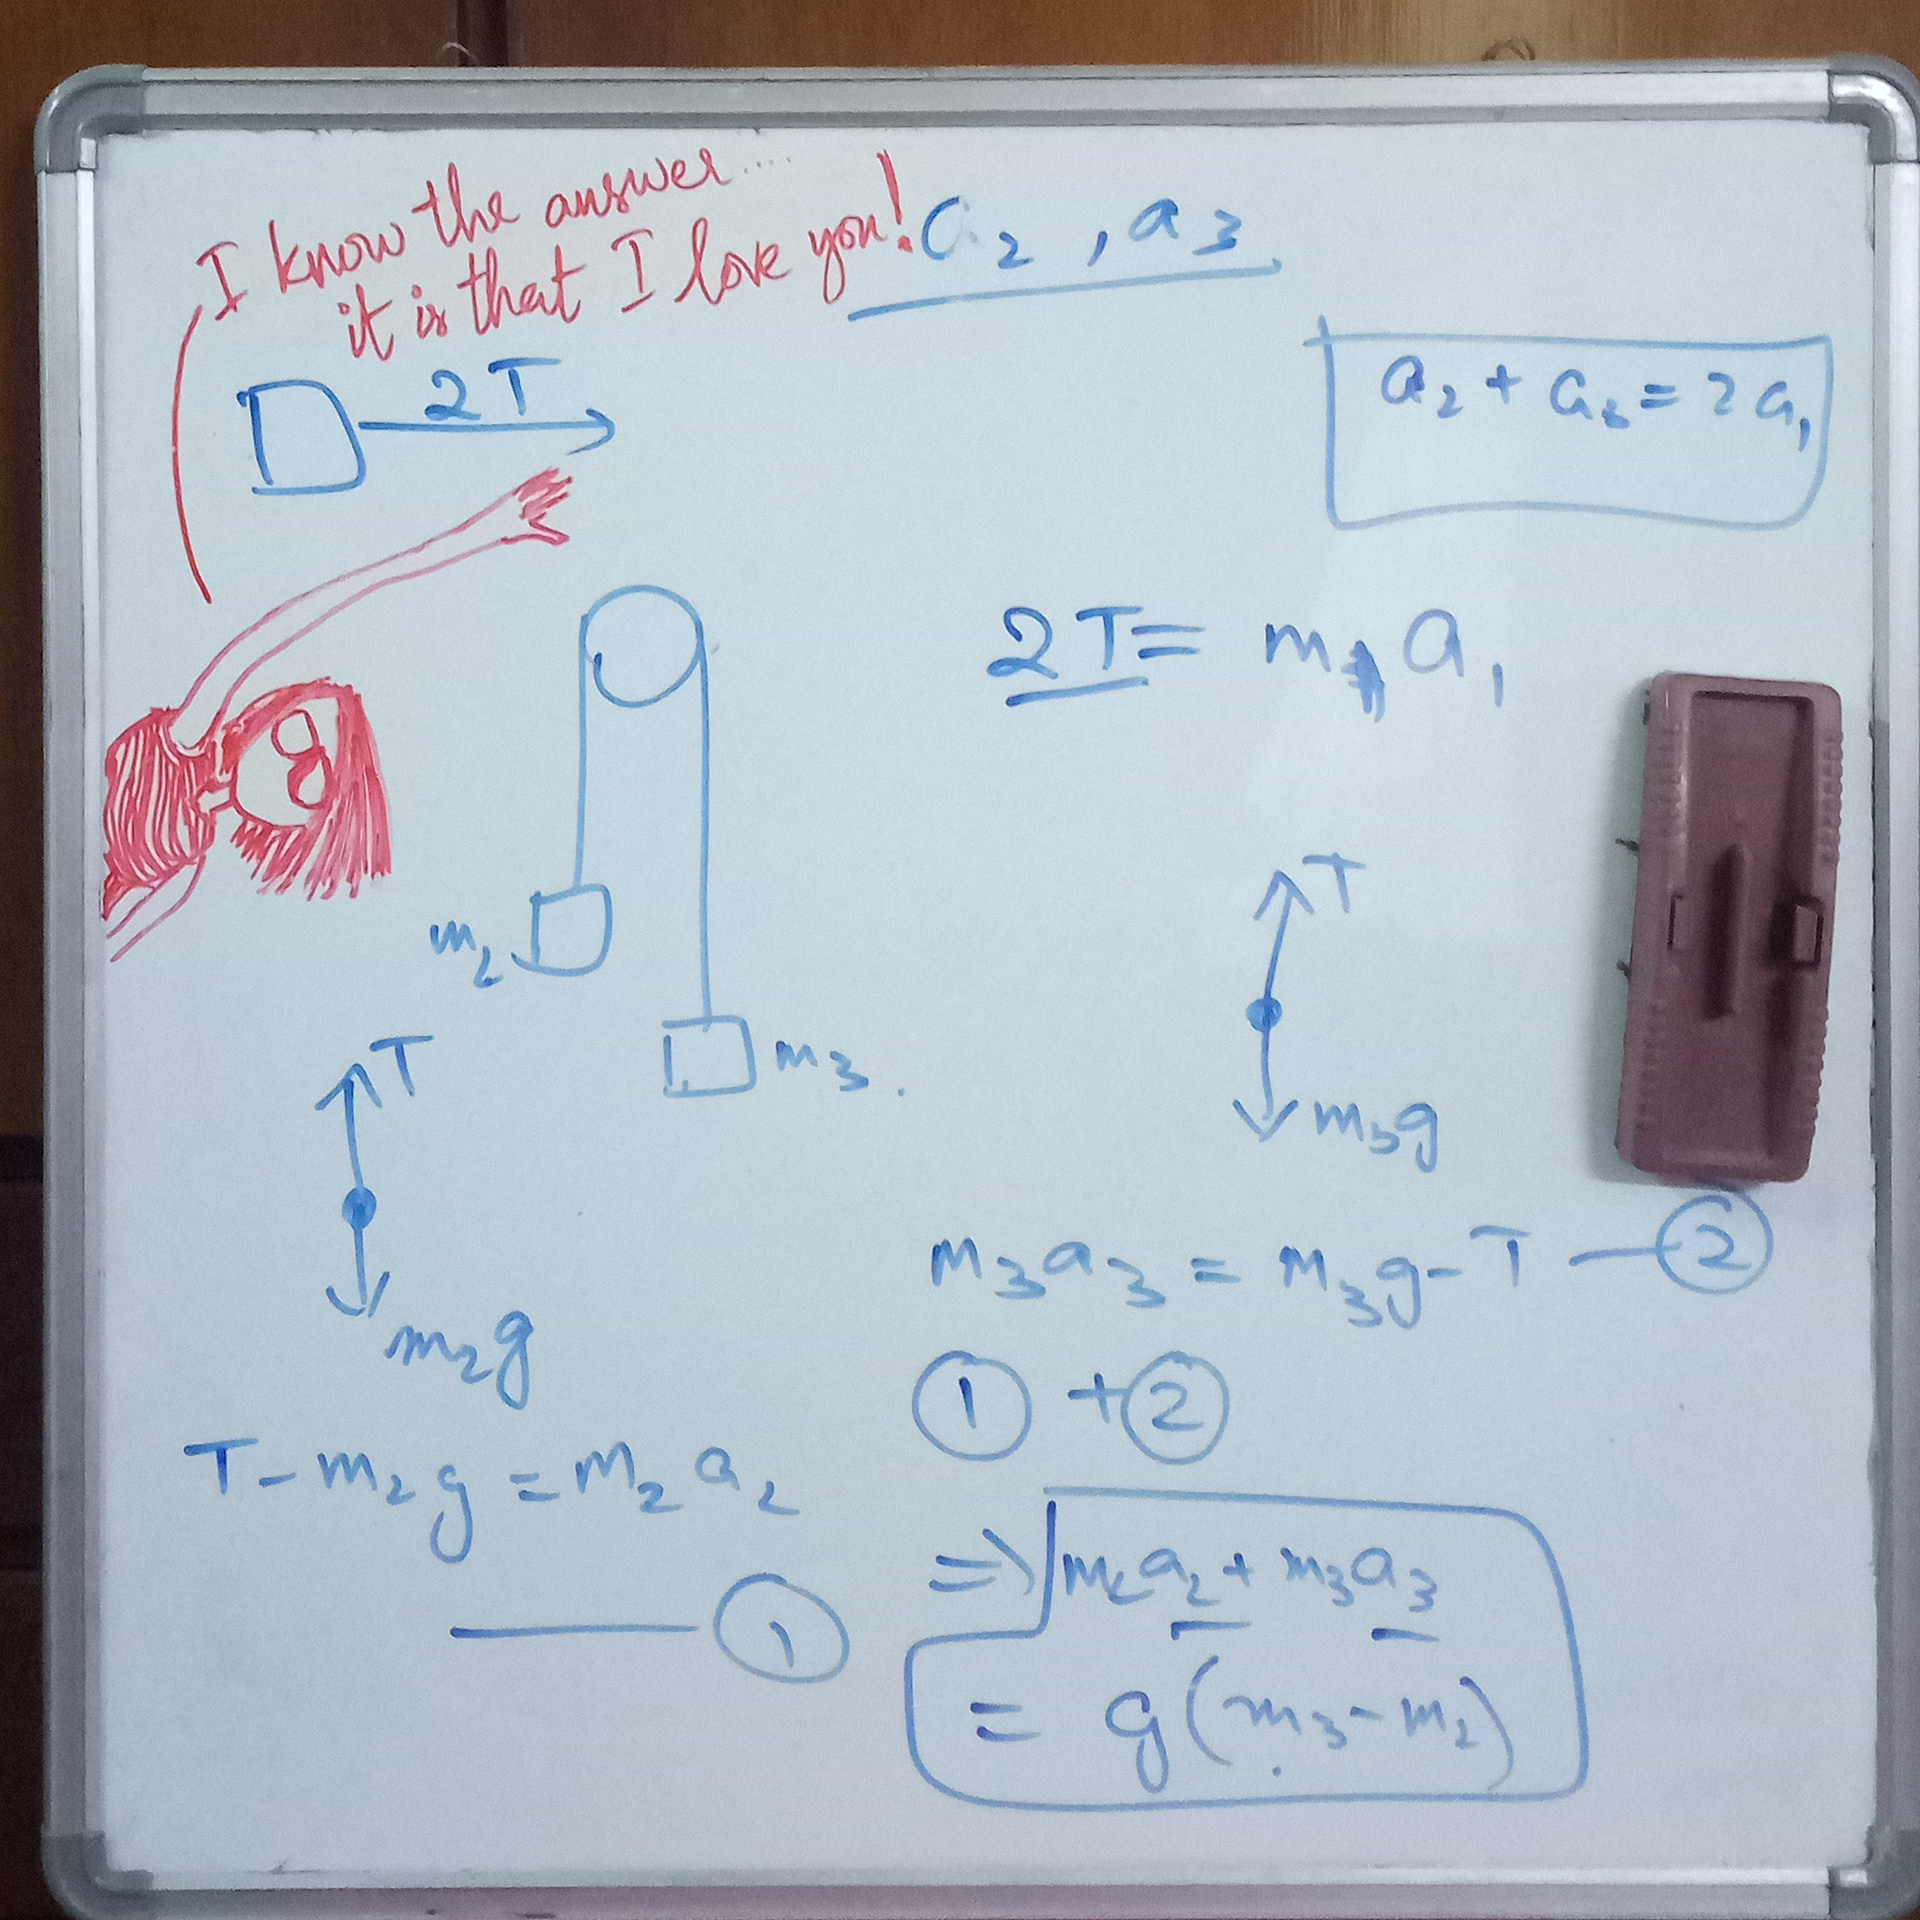 I know the answer....
it is that I love you!
a₂ , a₃
2T
a₂ + a₃ = 2a₁
2T = m₁a₁
m₂
m₃.
T
m₃g
T
m₂g
m₃a₃ = m₃g - T — ②
① + ②
T - m₂g = m₂a₂
— ①
=> m₂a₂ + m₃a₃
= g(m₃ - m₂)